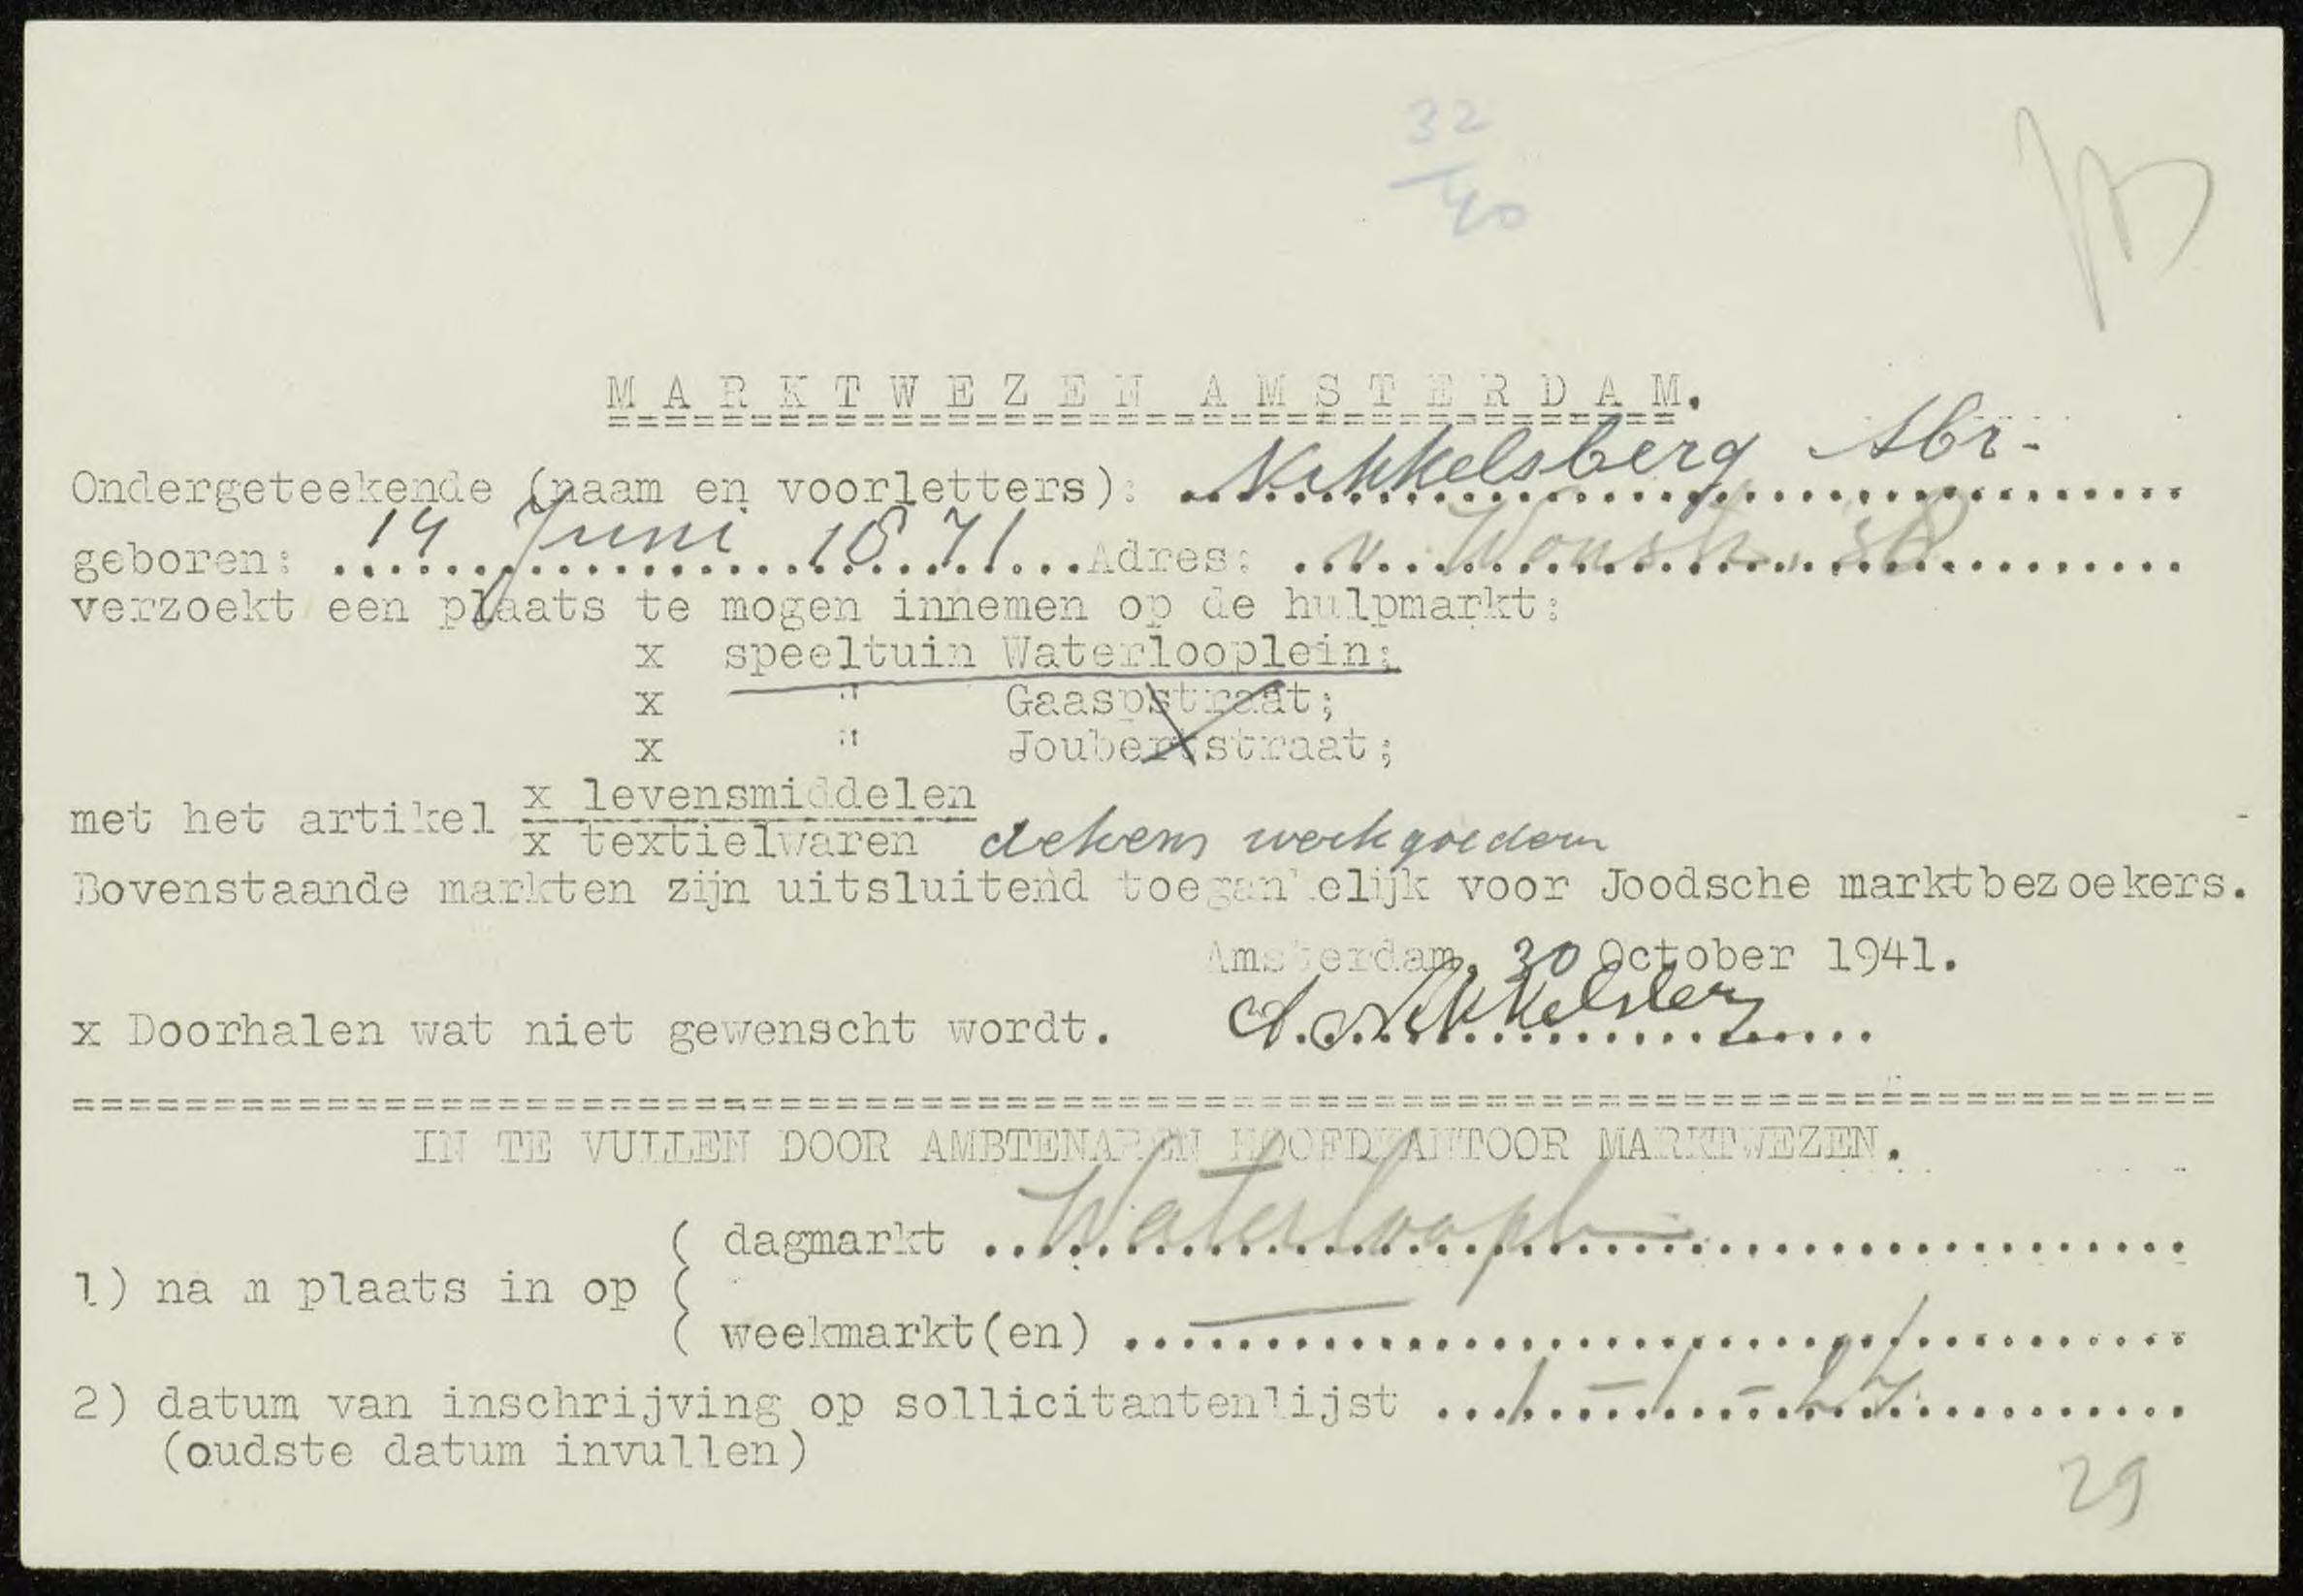 32
40
MARKTWEZEN AMSTERDAM.
Ondergeteekende (naam en voorletters): Nikkelsberg Abr.
geboren: 14 Juni 1871 Adres: v. Woustr. 38
verzoekt een plaats te mogen innemen op de hulpmarkt:
x speeltuin Waterlooplein;
x " Gaaspstraat;
x " Joubertstraat;
met het artikel x levensmiddelen
x textielwaren dekens werkgoederen
Bovenstaande markten zijn uitsluitend toegankelijk voor Joodsche marktbezoekers.
Amsterdam, 30 October 1941.
x Doorhalen wat niet gewenscht wordt. A. Nikkelsberg
IN TE VULLEN DOOR AMBTENAREN HOOFDKANTOOR MARKTWEZEN.
( dagmarkt Waterloopl
1) nam plaats in op (
( weekmarkt(en) —
2) datum van inschrijving op sollicitantenlijst 1-1-27
(oudste datum invullen)
29